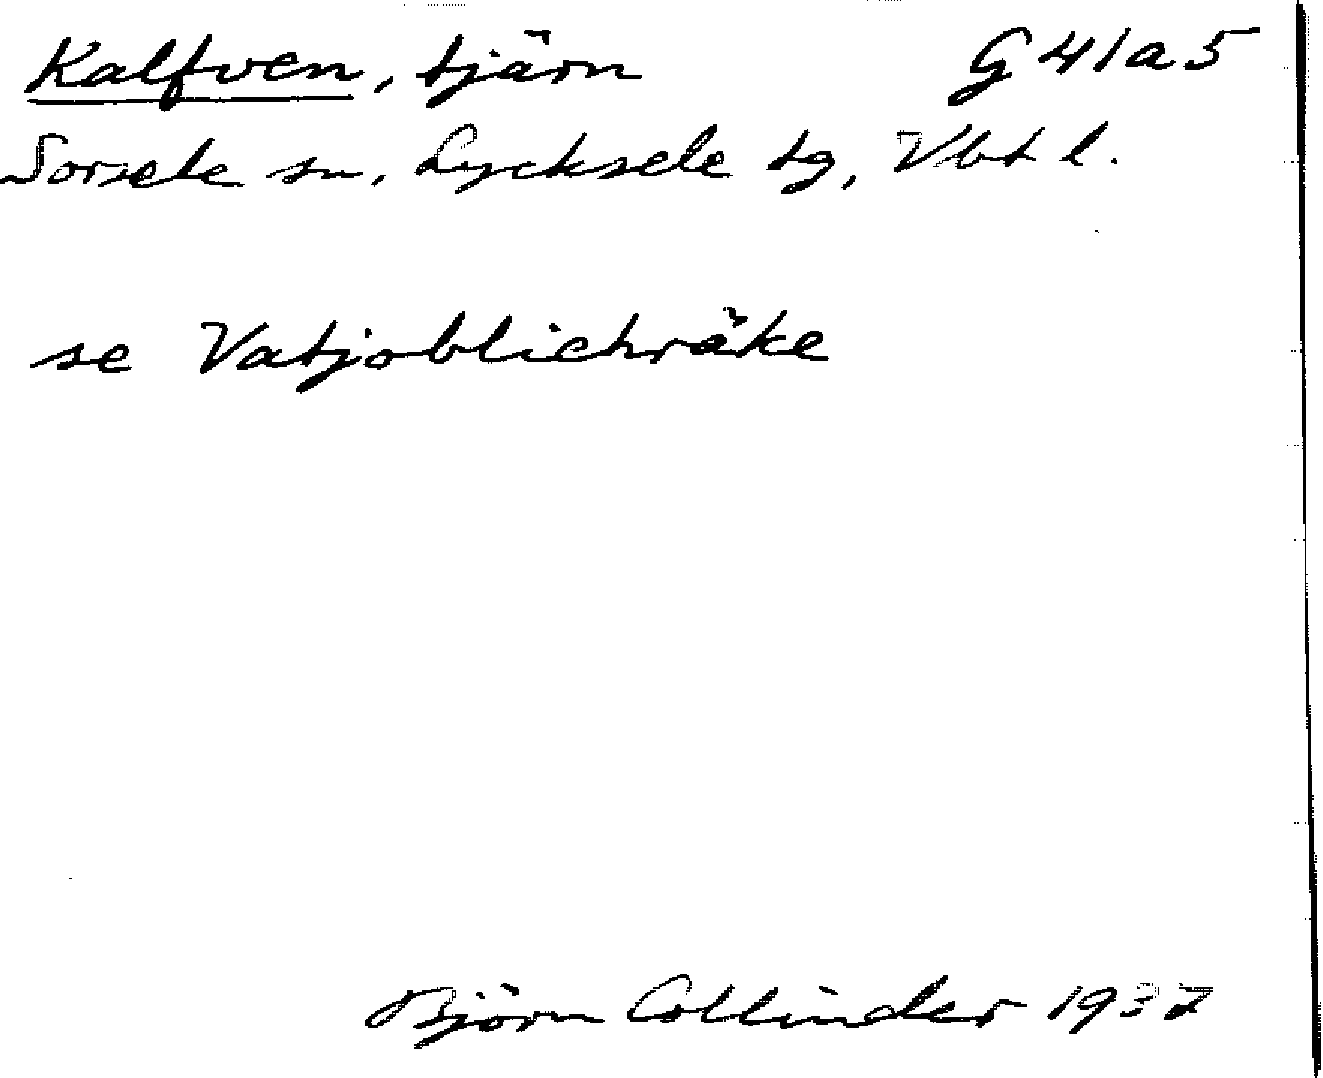 Kalfven, tjärn G 41 a 5
Sorsele sn, Lycksele tg, Vbt l.
se Vatjoblichräke
Björn Collinder 1937